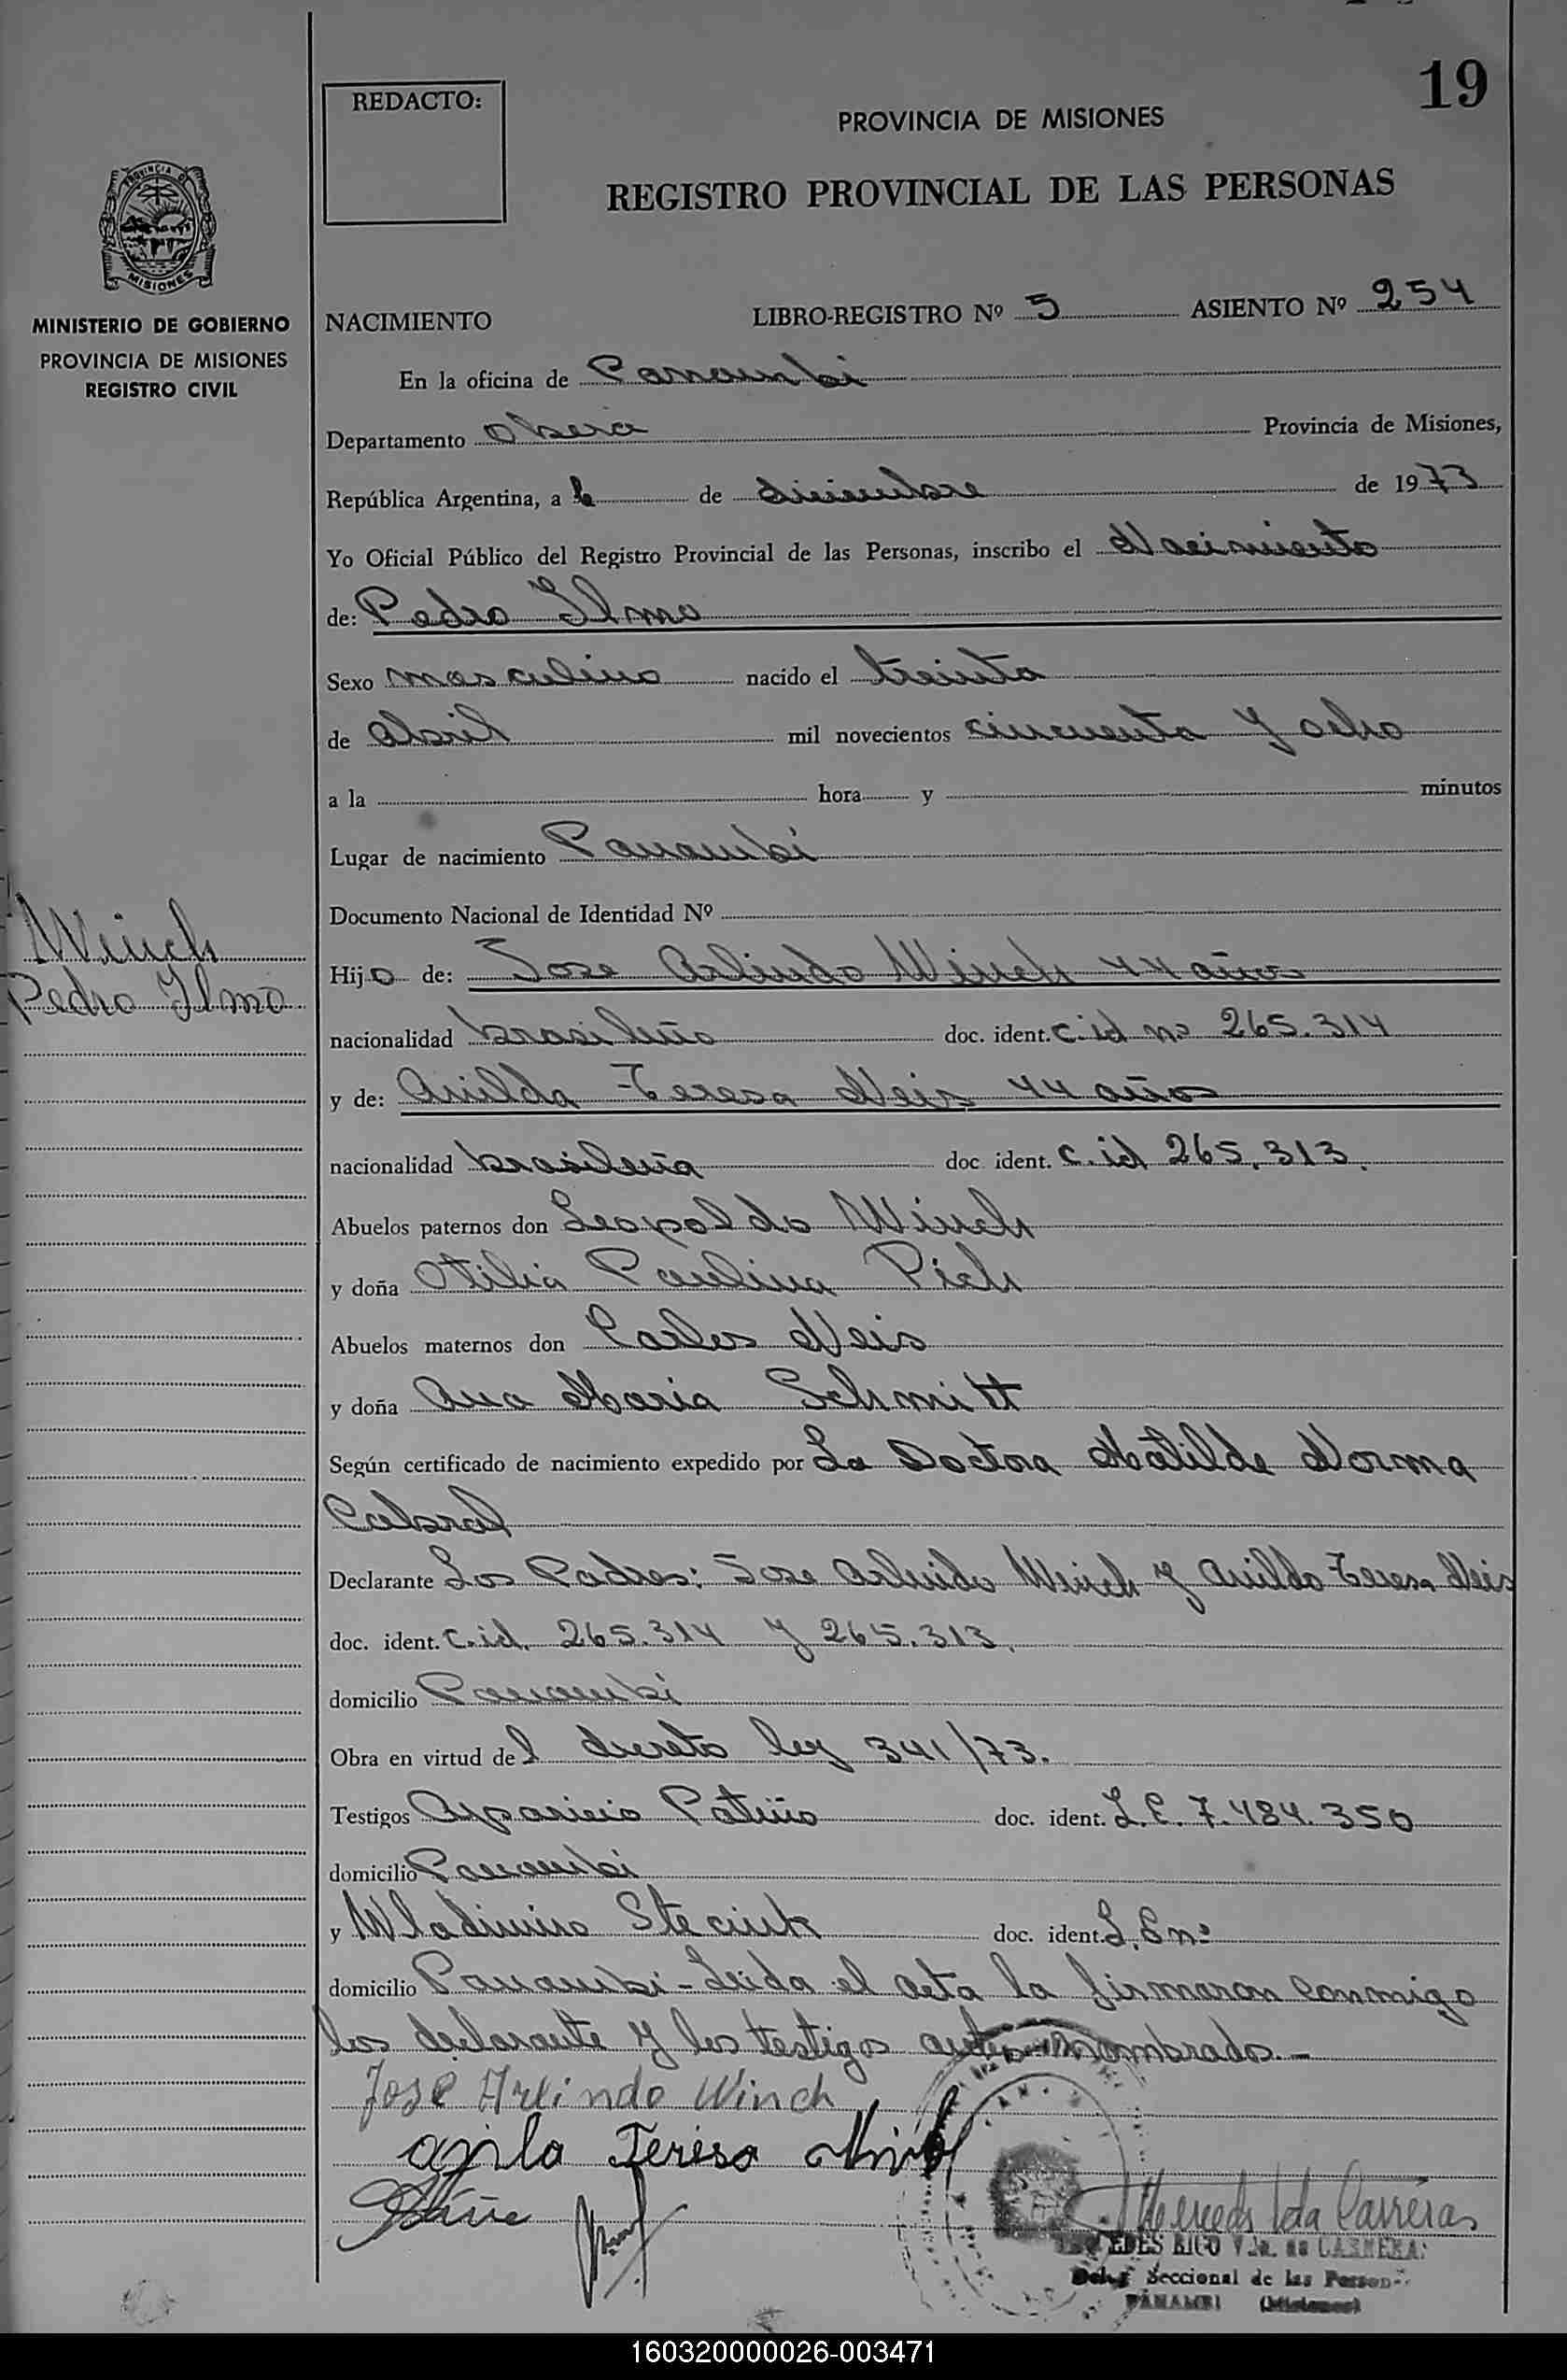 19
REDACTO:
PROVINCIA DE MISIONES
REGISTRO PROVINCIAL DE LAS PERSONAS
PROVINCIA DE
MISIONES
MINISTERIO DE GOBIERNO
PROVINCIA DE MISIONES
REGISTRO CIVIL
NACIMIENTO LIBRO-REGISTRO Nº 5 ASIENTO Nº 254
En la oficina de Panambi
Departamento Obera Provincia de Misiones,
República Argentina, a de diciembre de 1973
Yo Oficial Público del Registro Provincial de las Personas, inscribo el Nacimiento
de: Pedro Ilmo
Sexo masculino nacido el treinta
de Abril mil novecientos cincuenta y ocho
a la hora y minutos
Lugar de nacimiento Panambi
Documento Nacional de Identidad Nº
Winch
Pedro Ilmo
Hijo de: Jose Arlindo Winch 44 años
nacionalidad brasileño doc. ident. c.id nº 265.314
y de: Anilda Teresa Neis 44 años
nacionalidad brasileña doc ident. c.id 265.313.
Abuelos paternos don Leopoldo Winch
y doña Otilia Paulina Pich
Abuelos maternos don Carlos Neis
y doña Ana Maria Schmitt
Según certificado de nacimiento expedido por La Doctora Matilde Norma
Cabral
Declarante Los Padres: Jose Arlindo Winch y Anilda Teresa Neis
doc. ident. C.id. 265.314 y 265.313.
domicilio Panambi
Obra en virtud del decreto ley 341/73.
Testigos Aparicio Patiño doc. ident. L.E. 7.484.350
domicilio Panambi
y Wladimiro Steciuk doc. ident. L.E nº
domicilio Panambi - Leida el acta la firmaron conmigo
los declarante y los testigos antes nombrados.-
Jose Arlindo Winch
Teresa
Mercedes Vda Carreras
EDES RICO Vda. de CARRERA
Deleg Seccional de las Person
PANAMBI (Misiones)
160320000026-003471